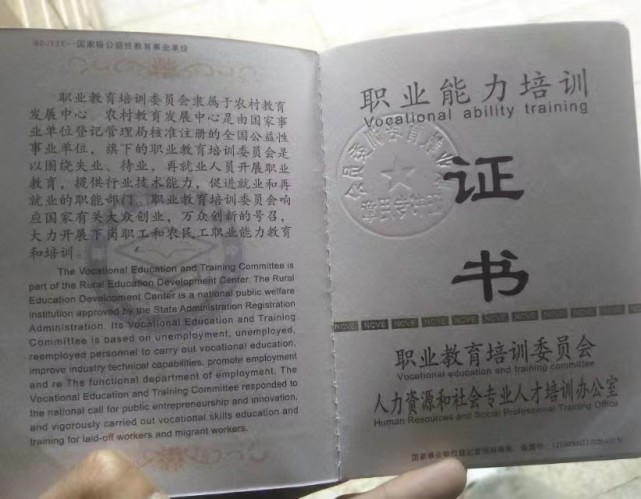 国家级公益性教育事业单位
职业教育培训委员会隶属于农村教育
发展中心。农村教育发展中心是由国家事
业单位登记管理局核准注册的全国公益性
事业单位，旗下的职业教育培训委员会是
以围绕失业、待业，再就业人员开展职业
教育，提供行业技术能力，促进就业和再
就业的职能部门。职业教育培训委员会响
应国家有关大众创业，万众创新的号召，
大力开展下岗职工和农民工职业能力教育
和培训
The Vocational Education and Training Committee is
part of the Rural Education Development Center. The Rural
Education Development Center is a national public welfare
institution approved by the State Administration Registration
Administration. Its Vocational Education and Training
Committee is based on unemployment, unemployed,
reemployed personnel to carry out vocational education,
improve industry technical capabilities, promote employment
and re The functional department of employment. The
Vocational Education and Training Committee responded to
the national call for public entrepreneurship and innovation,
and vigorously carried out vocational skills education and
training for laid-off workers and migrant workers.
职业能力培训
Vocational ability training
证
书
NCVE NCVE NCVE NCVE NCVE NCVE NCVE NCVE NCVE
职业教育培训委员会
Vocational education and training committee
人力资源和社会专业人才培训办公室
Human Resources and Social Professional Training Office
国家事业单位登记管理局